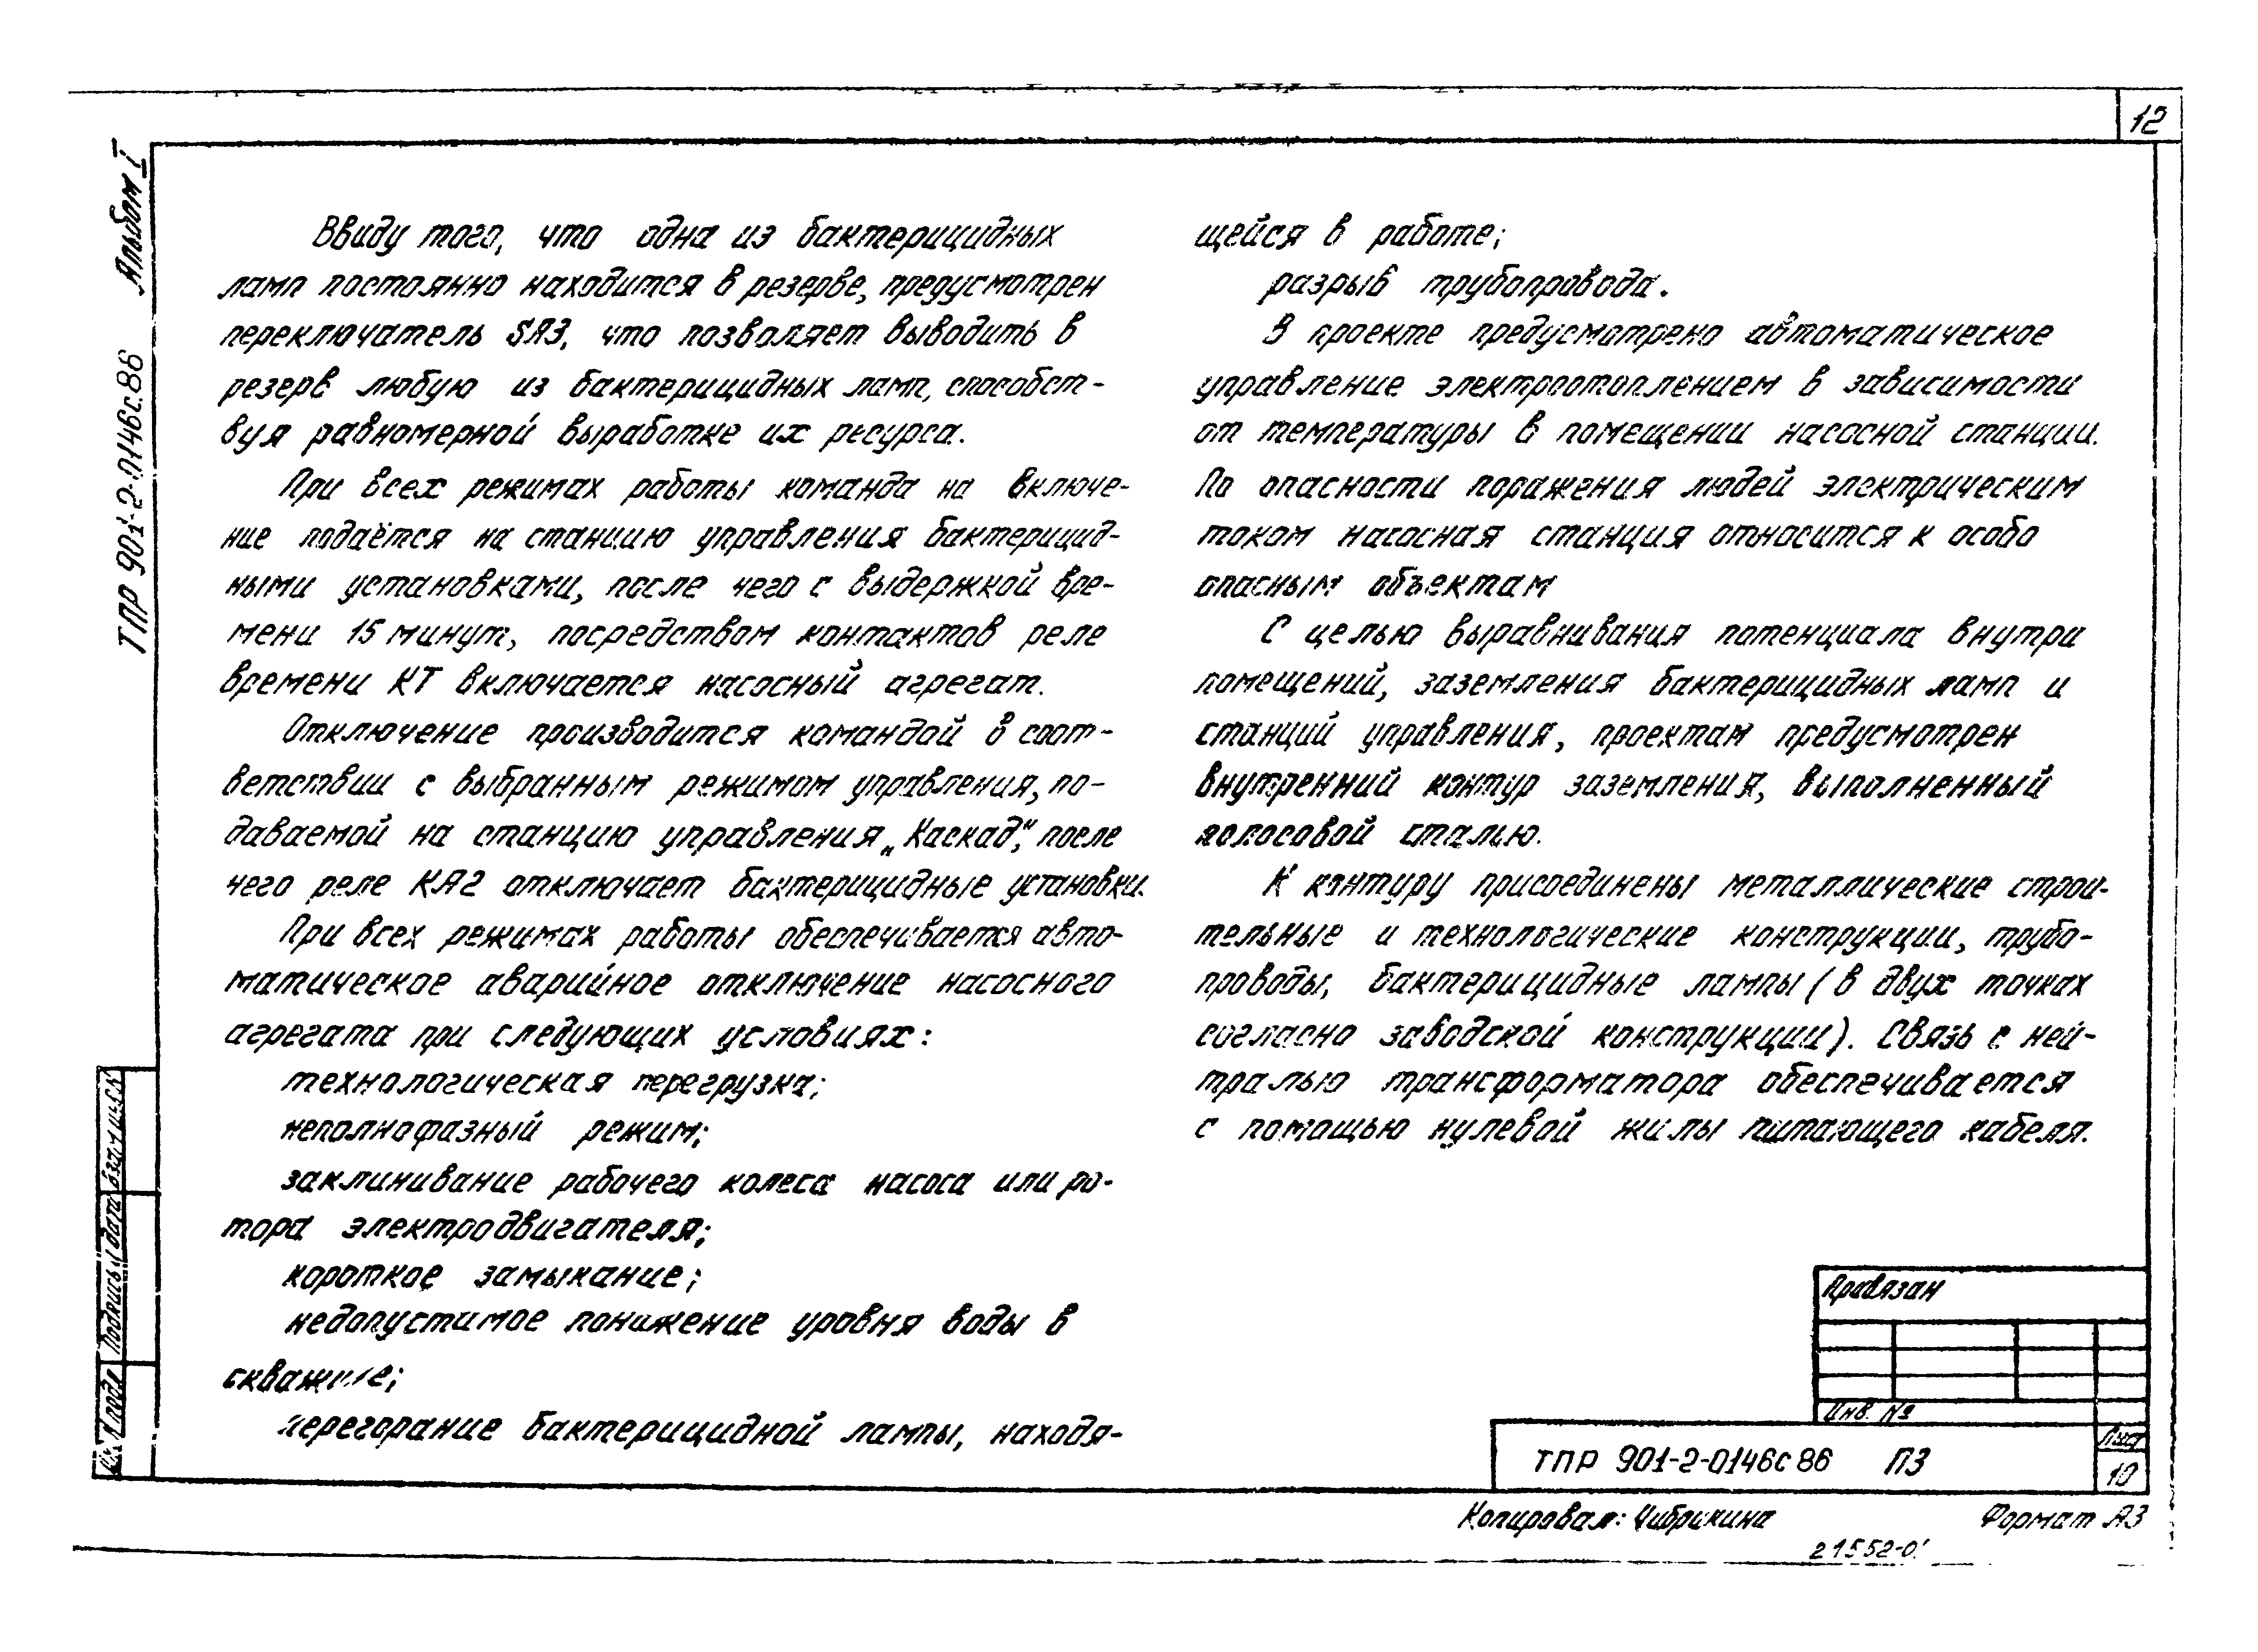 12
Альбом I
ТПР 901-2-0146с.86
Ввиду того, что одна из бактерицидных
ламп постоянно находится в резерве, предусмотрен
переключатель SA3, что позволяет выводить в
резерв любую из бактерицидных ламп, способст-
вуя равномерной выработке их ресурса.
При всех режимах работы команда на включе-
ние подаётся на станцию управления бактерицид-
ными установками, после чего с выдержкой вре-
мени 15 минут, посредством контактов реле
времени КТ включается насосный агрегат.
Отключение производится командой в соот-
ветствии с выбранным режимом управления, по-
даваемой на станцию управления „Каскад", после
чего реле КА2 отключает бактерицидные установки.
При всех режимах работы обеспечивается авто-
матическое аварийное отключение насосного
агрегата при следующих условиях:
технологическая перегрузка;
неполнофазный режим;
заклинивание рабочего колеса насоса или ро-
тора электродвигателя;
короткое замыкание;
недопустимое понижение уровня воды в
скважине;
перегорание бактерицидной лампы, находя-
щейся в работе;
разрыв трубопровода.
В проекте предусмотрено автоматическое
управление электроотоплением в зависимости
от температуры в помещении насосной станции.
По опасности поражения людей электрическим
током насосная станция относится к особо
опасным объектам
С целью выравнивания потенциала внутри
помещений, заземления бактерицидных ламп и
станций управления, проектам предусмотрен
внутренний контур заземления, выполненный
полосовой сталью.
К контуру присоединены металлические строи-
тельные и технологические конструкции, трубо-
проводы, бактерицидные лампы (в двух точках
согласно заводской конструкции). Связь с ней-
тралью трансформатора обеспечивается
с помощью нулевой жилы питающего кабеля.
Взам инв.
Подпись и дата
№ подл
Привязан
Инв. №
ТПР 901-2-0146с86 ПЗ
Лист
10
Копировал: Чибрикина Формат А3
21552-0